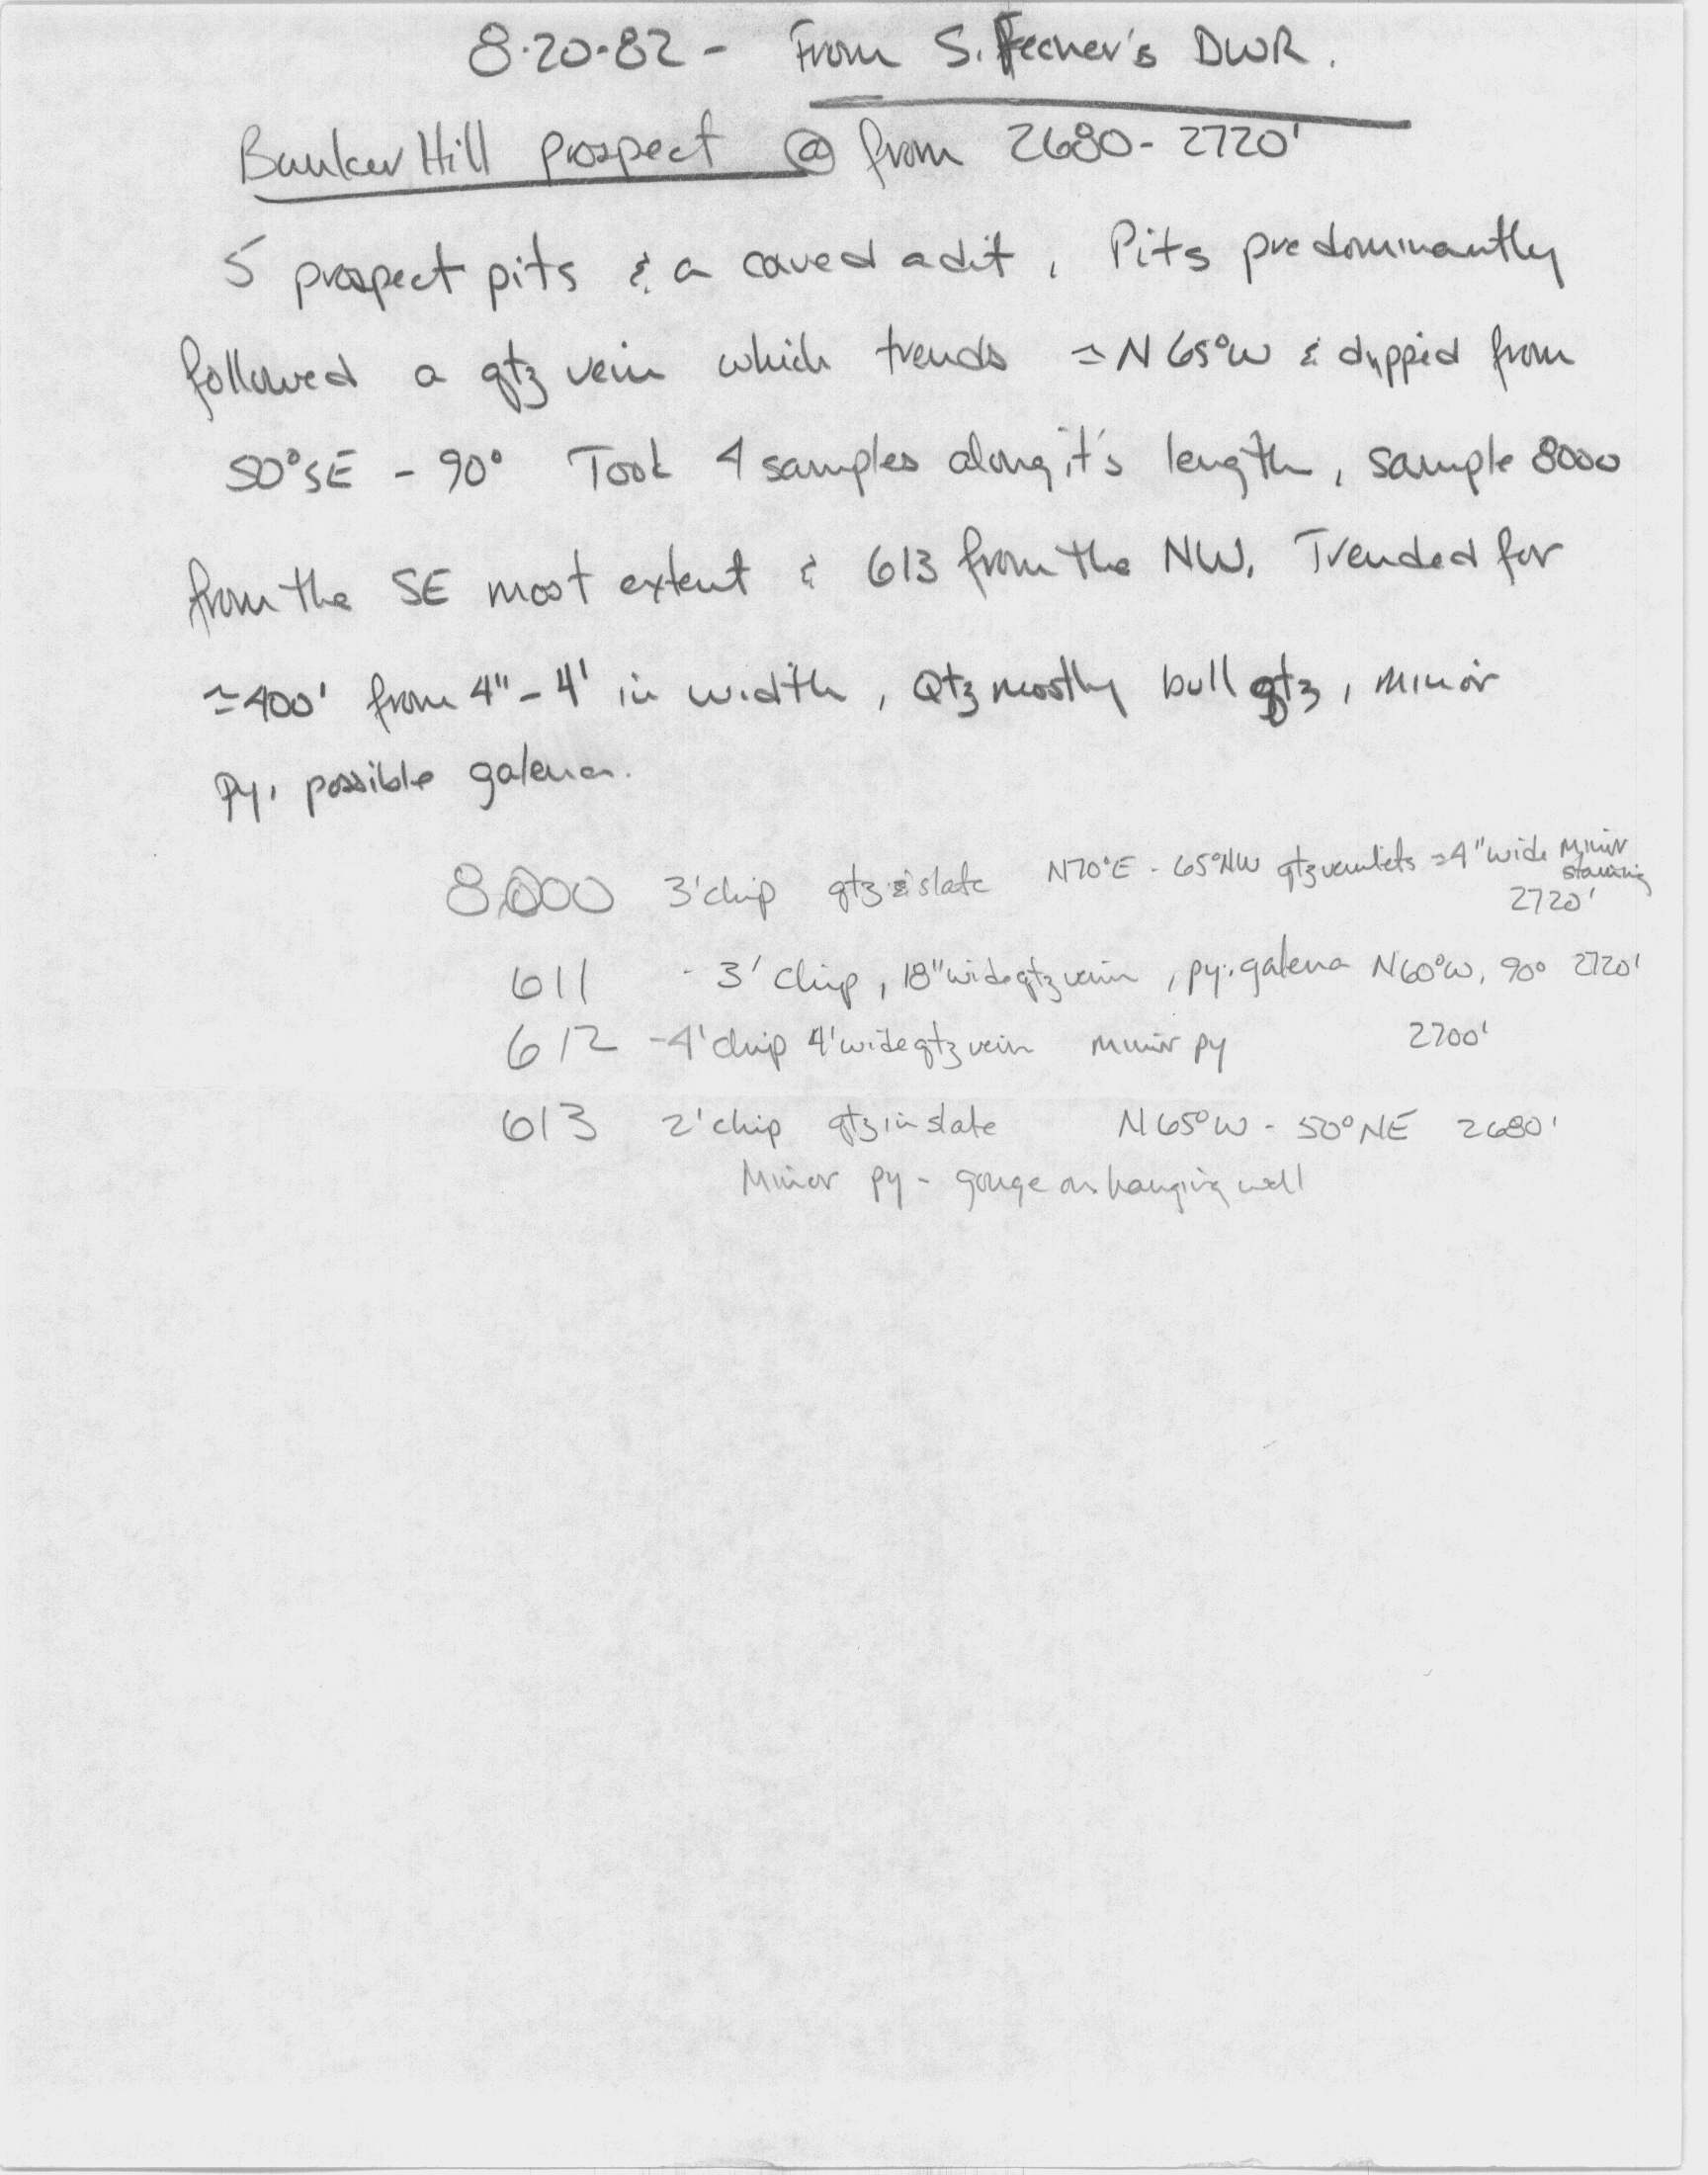 8-20-82 - From S. Fechner's DWR.
Bunker Hill prospect @ from 2680-2720'
5 prospect pits & a caved adit, Pits predominantly
followed a qtz vein which trends ≃ N65°W & dipped from
50°SE - 90° Took 4 samples along it's length, sample 8000
from the SE most extent & 613 from the NW. Trended for
≃400' from 4" - 4' in width, Qtz mostly bull qtz, minor
Py, possible galena.
8000 3' chip qtz & slate N70°E - 65°NW qtz veinlets ≃4" wide Minor staining
2720'
611 - 3' chip, 18" wide qtz vein, py, galena N60°W, 90° 2720'
612 - 4' chip 4' wide qtz vein minor py 2700'
613 2' chip qtz in slate N65°W - 50°NE 2680'
Minor py - gouge on hanging wall